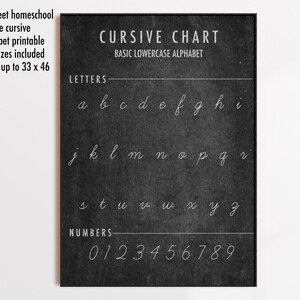 eet homeschool
e cursive
bet printable
zes included
up to 33 x 46
CURSIVE CHART
BASIC LOWERCASE ALPHABET
LETTERS
a b c d e f g h i
j k l m n o p q r
s t u v w x y z
NUMBERS
0 1 2 3 4 5 6 7 8 9